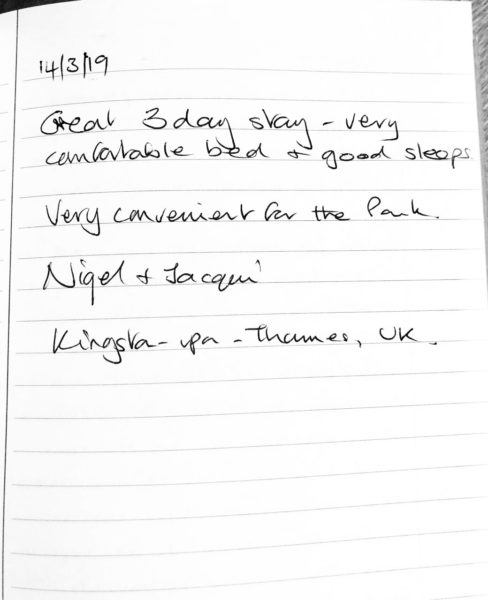 14/3/19
Great 3 day stay - very
comfortable bed + good sleeps
Very convenient for the Park.
Nigel + Jacqui
Kingston - upon - Thames, UK.